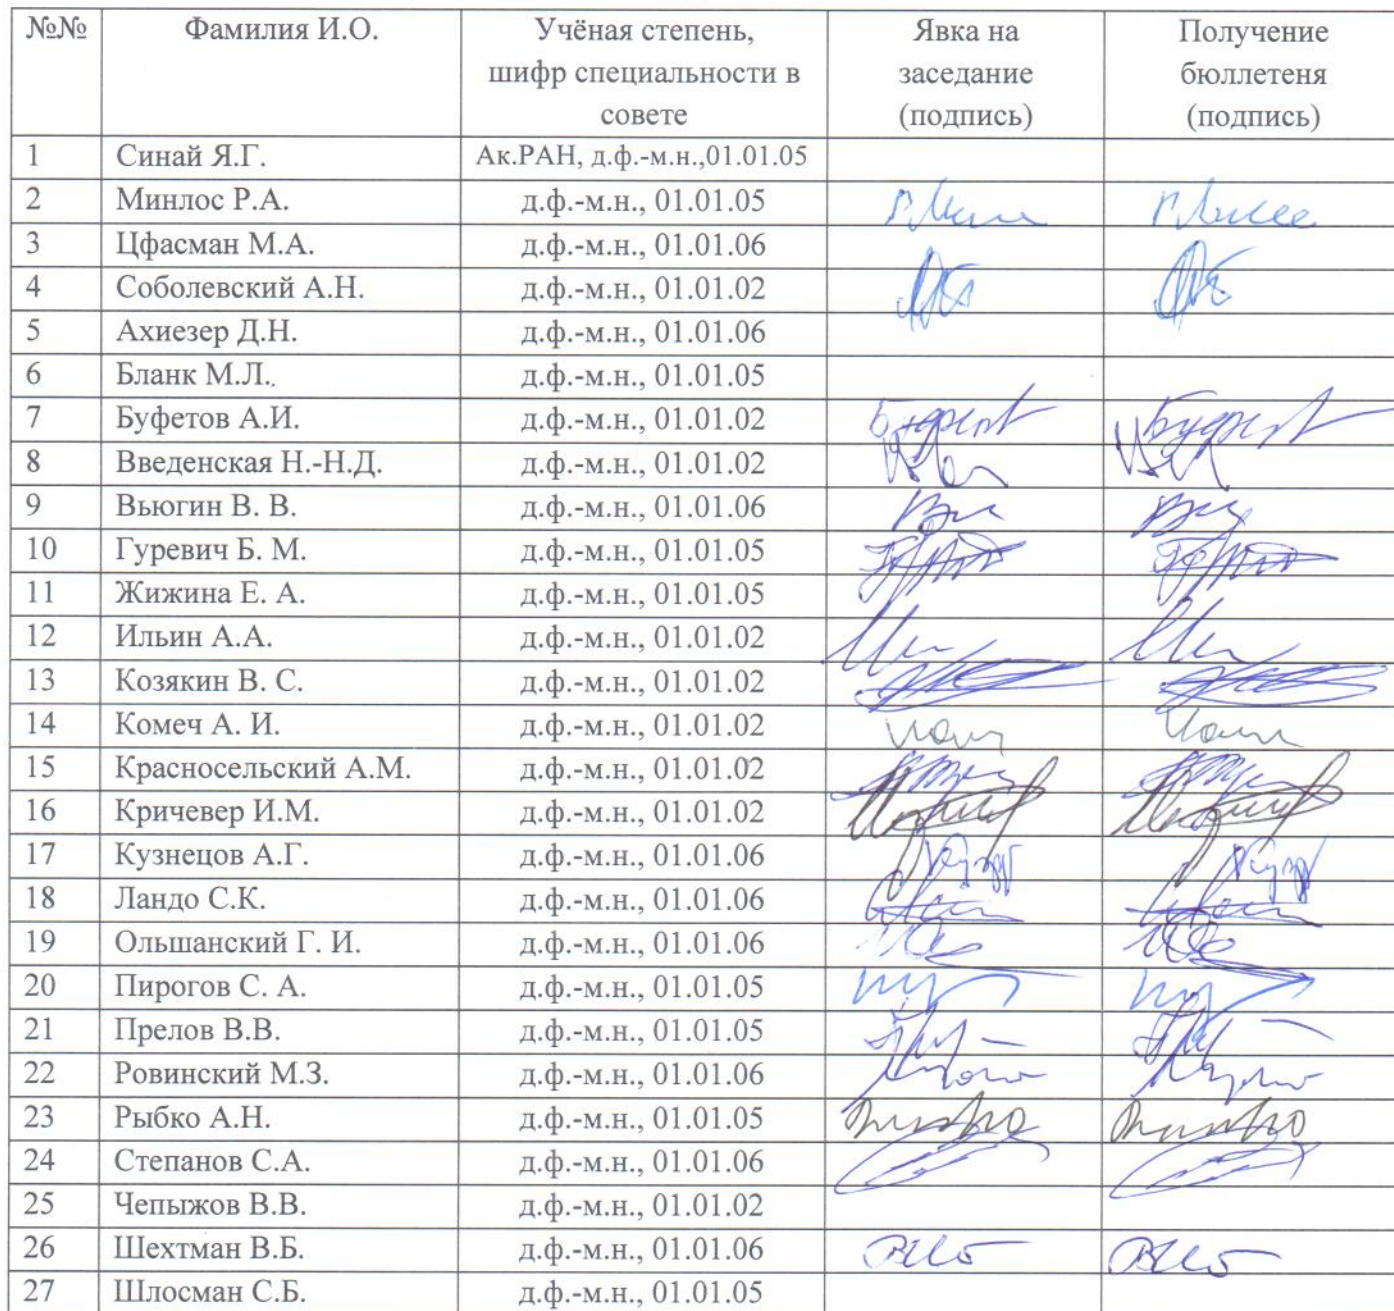 №№ Фамилия И.О. Учёная степень, шифр специальности в совете Явка на заседание (подпись) Получение бюллетеня (подпись)
1 Синай Я.Г. Ак.РАН, д.ф.-м.н.,01.01.05
2 Минлос Р.А. д.ф.-м.н., 01.01.05
3 Цфасман М.А. д.ф.-м.н., 01.01.06
4 Соболевский А.Н. д.ф.-м.н., 01.01.02
5 Ахиезер Д.Н. д.ф.-м.н., 01.01.06
6 Бланк М.Л. д.ф.-м.н., 01.01.05
7 Буфетов А.И. д.ф.-м.н., 01.01.02
8 Введенская Н.-Н.Д. д.ф.-м.н., 01.01.02
9 Вьюгин В. В. д.ф.-м.н., 01.01.06
10 Гуревич Б. М. д.ф.-м.н., 01.01.05
11 Жижина Е. А. д.ф.-м.н., 01.01.05
12 Ильин А.А. д.ф.-м.н., 01.01.02
13 Козякин В. С. д.ф.-м.н., 01.01.02
14 Комеч А. И. д.ф.-м.н., 01.01.02
15 Красносельский А.М. д.ф.-м.н., 01.01.02
16 Кричевер И.М. д.ф.-м.н., 01.01.02
17 Кузнецов А.Г. д.ф.-м.н., 01.01.06
18 Ландо С.К. д.ф.-м.н., 01.01.06
19 Ольшанский Г. И. д.ф.-м.н., 01.01.06
20 Пирогов С. А. д.ф.-м.н., 01.01.05
21 Прелов В.В. д.ф.-м.н., 01.01.05
22 Ровинский М.З. д.ф.-м.н., 01.01.06
23 Рыбко А.Н. д.ф.-м.н., 01.01.05
24 Степанов С.А. д.ф.-м.н., 01.01.06
25 Чепыжов В.В. д.ф.-м.н., 01.01.02
26 Шехтман В.Б. д.ф.-м.н., 01.01.06
27 Шлосман С.Б. д.ф.-м.н., 01.01.05